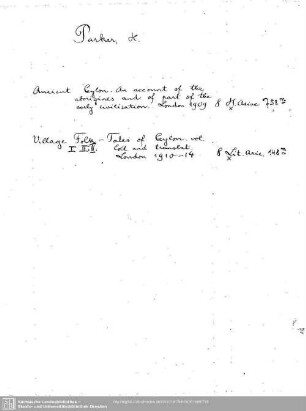 Parker, H.
Ancient Ceylon. An account of the
aborigines and of part of the
early civilization. London 1909 8 H. Asiae 758
Village Folk-Tales of Ceylon. vol.
I. II. Coll. and translat.
London 1910-14 8 Lit. Asie. 148
Sächsische Landesbibliothek -
Staats- und Universitätsbibliothek Dresden